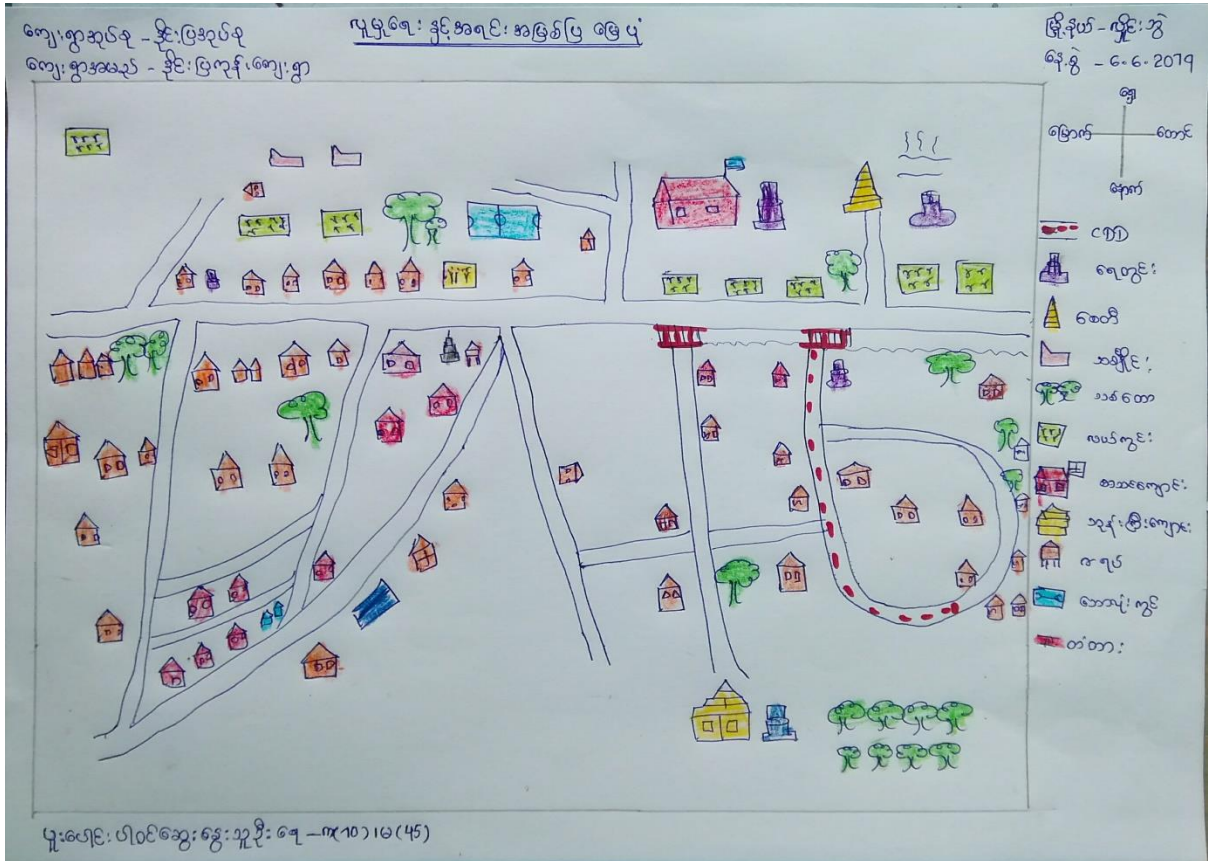 ကျေးရွာအုပ်စု - ခိုင်းပြအုပ်စု
ကျေးရွာအမည် - ခိုင်းပြကုန်းကျေးရွာ
လူမှုရေး နှင့်အရင်းအမြစ်ပြ မြေပုံ
မြို့နယ် - လှိုင်းဘွဲ
နေ့စွဲ - ၆.၆.2019
ရှေ့
မြောက်
တောင်
နောက်
CDD
ရေတွင်း
စေတီ
သင်္ချိုင်း
သစ်တော
လယ်ကွင်း
စာသင်ကျောင်း
ဘုန်းကြီးကျောင်း
ဇရပ်
ဘောလုံးကွင်း
တံတား
ပူးပေါင်းပါဝင်ဆွေးနွေးသူဦးရေ - ကျ(၁၀)၊မ(45)